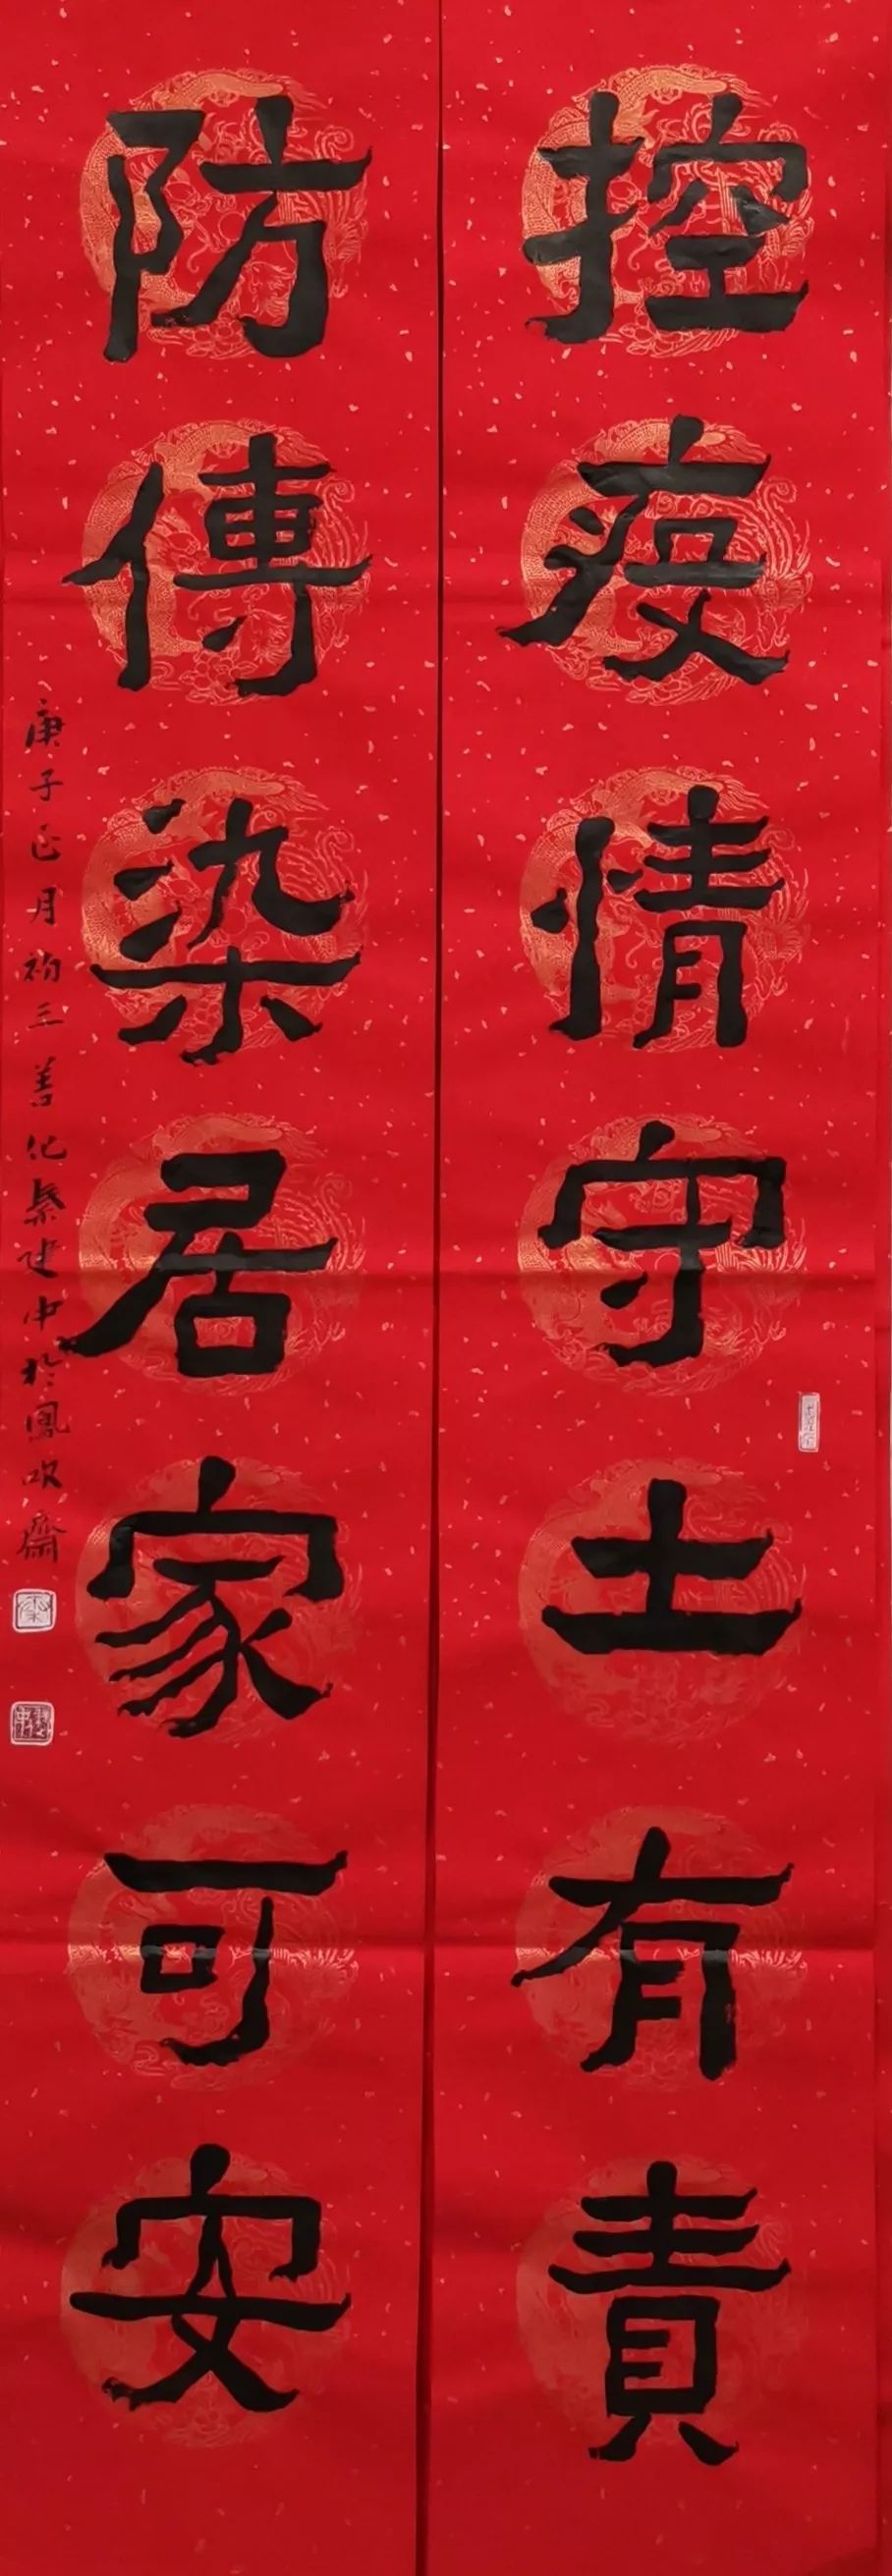 控疫情守土有責
防傳染居家可安
庚子正月初三善化黎建中於鳳吹齋